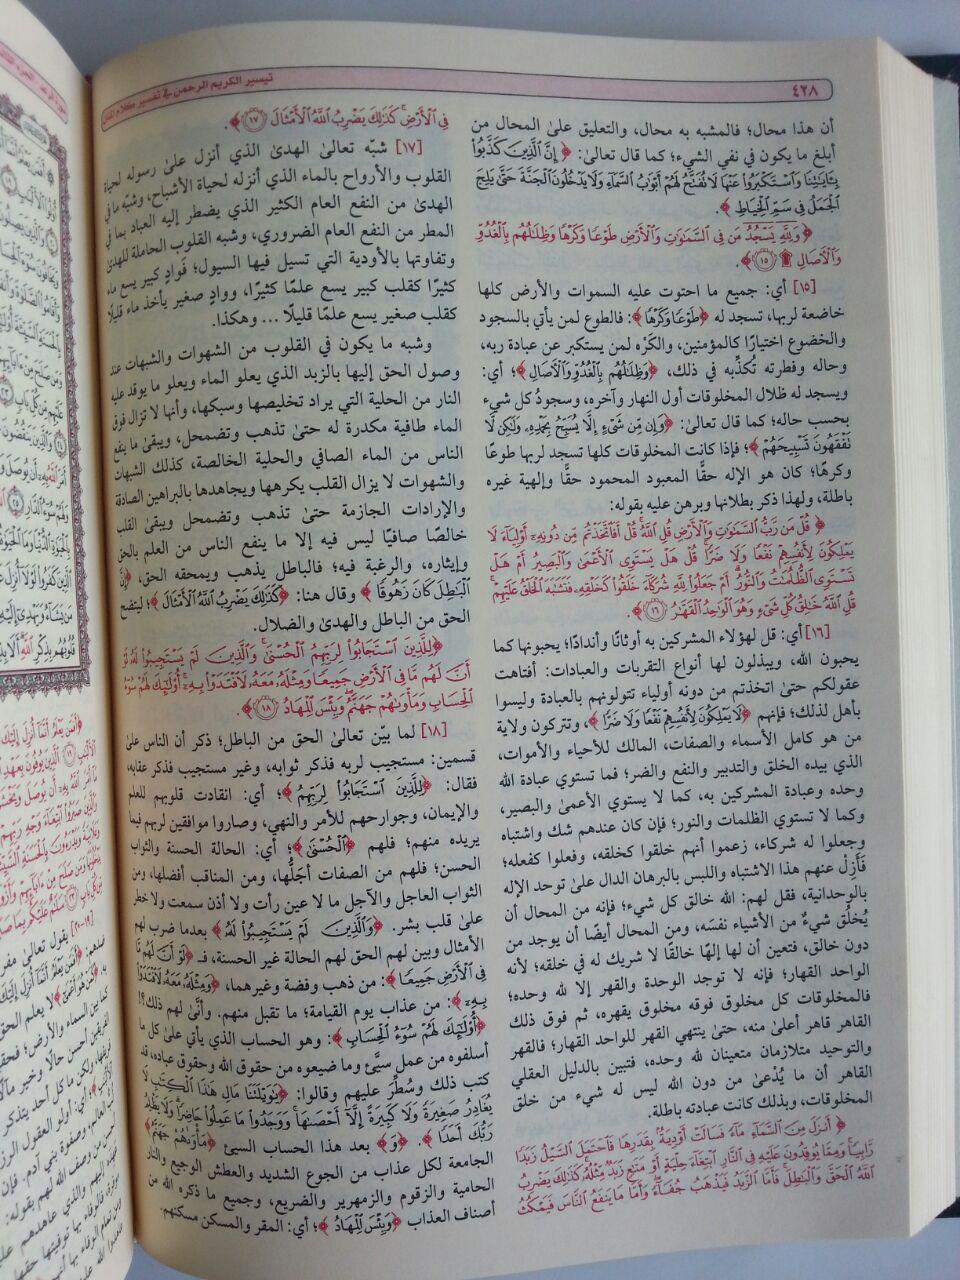 ٤٢٨
تيسير الكريم الرحمن في تفسير كلام المنان
أن هذا محال؛ فالمشبه به محال، والتعليق على المحال من
أبلغ ما يكون في نفي الشيء؛ كما قال تعالى: ﴿إِنَّ الَّذِينَ كَذَّبُوا
بِآيَاتِنَا وَاسْتَكْبَرُوا عَنْهَا لَا تُفَتَّحُ لَهُمْ أَبْوَابُ السَّمَاءِ وَلَا يَدْخُلُونَ الْجَنَّةَ حَتَّىٰ يَلِجَ
الْجَمَلُ فِي سَمِّ الْخِيَاطِ﴾.
﴿وَلِلَّهِ يَسْجُدُ مَن فِي السَّمَاوَاتِ وَالْأَرْضِ طَوْعًا وَكَرْهًا وَظِلَالُهُم بِالْغُدُوِّ
وَالْآصَالِ ۩ ١٥﴾.
[١٥] أي: جميع ما احتوت عليه السموات والأرض كلها
خاضعة لربها، تسجد له ﴿طَوْعًا وَكَرْهًا﴾: فالطوع لمن يأتي بالسجود
والخضوع اختيارًا كالمؤمنين، والكَرْه لمن يستكبر عن عبادة ربه،
وحاله وفطرته تُكذِّبه في ذلك، ﴿وَظِلَالُهُم بِالْغُدُوِّ وَالْآصَالِ﴾؛ أي:
ويسجد له ظلال المخلوقات أول النهار وآخره، وسجودُ كل شيء
بحسب حاله؛ كما قال تعالى: ﴿وَإِن مِّن شَيْءٍ إِلَّا يُسَبِّحُ بِحَمْدِهِ وَلَٰكِن لَّا
تَفْقَهُونَ تَسْبِيحَهُمْ﴾؛ فإذا كانت المخلوقات كلها تسجد لربها طوعًا
وكرهًا؛ كان هو الإله حقًّا المعبود المحمود حقًّا وإلهية غيره
باطلة، ولهذا ذكر بطلانها وبرهن عليه بقوله:
﴿قُلْ مَن رَّبُّ السَّمَاوَاتِ وَالْأَرْضِ قُلِ اللَّهُ قُلْ أَفَاتَّخَذْتُم مِّن دُونِهِ أَوْلِيَاءَ لَا
يَمْلِكُونَ لِأَنفُسِهِمْ نَفْعًا وَلَا ضَرًّا قُلْ هَلْ يَسْتَوِي الْأَعْمَىٰ وَالْبَصِيرُ أَمْ هَلْ
تَسْتَوِي الظُّلُمَاتُ وَالنُّورُ أَمْ جَعَلُوا لِلَّهِ شُرَكَاءَ خَلَقُوا كَخَلْقِهِ فَتَشَابَهَ الْخَلْقُ عَلَيْهِمْ
قُلِ اللَّهُ خَالِقُ كُلِّ شَيْءٍ وَهُوَ الْوَاحِدُ الْقَهَّارُ ١٦﴾.
[١٦] أي: قل لهؤلاء المشركين به أوثانًا وأندادًا؛ يحبونها كما
يحبون الله، ويبذلون لها أنواع التقربات والعبادات: أفتاهت
عقولكم حتىٰ اتخذتم من دونه أولياء تتولونهم بالعبادة وليسوا
بأهل لذلك؛ فإنهم ﴿لَا يَمْلِكُونَ لِأَنفُسِهِمْ نَفْعًا وَلَا ضَرًّا﴾، وتتركون ولاية
من هو كامل الأسماء والصفات، المالك للأحياء والأموات،
الذي بيده الخلق والتدبير والنفع والضر؛ فما تستوي عبادة الله
وحده وعبادة المشركين به، كما لا يستوي الأعمىٰ والبصير،
وكما لا تستوي الظلمات والنور؛ فإن كان عندهم شك واشتباه
وجعلوا له شركاء، زعموا أنهم خلقوا كخلقه، وفعلوا كفعله؛
فَأَزِلْ عنهم هذا الاشتباه واللبس بالبرهان الدال علىٰ توحد الإله
بالوحدانية، فقل لهم: الله خالق كل شيء؛ فإنه من المحال أن
يُخلَق شيءٌ من الأشياء نفسَه، ومن المحال أيضًا أن يوجد من
دون خالق، فتعين أن لها إلهًا خالقًا لا شريك له في خلقه؛ لأنه
الواحد القهار؛ فإنه لا توجد الوحدة والقهر إلا لله وحده؛
فالمخلوقات كل مخلوق فوقه مخلوق يقهره، ثم فوق ذلك
القاهر قاهر أعلىٰ منه، حتىٰ ينتهي القهر للواحد القهار؛ فالقهر
والتوحيد متلازمان متعينان لله وحده، فتبين بالدليل العقلي
القاهر أن ما يُدْعىٰ من دون الله ليس له شيء من خلق
المخلوقات، وبذلك كانت عبادته باطلة.
﴿أَنزَلَ مِنَ السَّمَاءِ مَاءً فَسَالَتْ أَوْدِيَةٌ بِقَدَرِهَا فَاحْتَمَلَ السَّيْلُ زَبَدًا
رَّابِيًا وَمِمَّا يُوقِدُونَ عَلَيْهِ فِي النَّارِ ابْتِغَاءَ حِلْيَةٍ أَوْ مَتَاعٍ زَبَدٌ مِّثْلُهُ كَذَٰلِكَ يَضْرِبُ
اللَّهُ الْحَقَّ وَالْبَاطِلَ فَأَمَّا الزَّبَدُ فَيَذْهَبُ جُفَاءً وَأَمَّا مَا يَنفَعُ النَّاسَ فَيَمْكُثُ
فِي الْأَرْضِ كَذَٰلِكَ يَضْرِبُ اللَّهُ الْأَمْثَالَ ١٧﴾.
[١٧] شبّه تعالىٰ الهدىٰ الذي أنزل علىٰ رسوله لحياة
القلوب والأرواح بالماء الذي أنزله لحياة الأشباح، وشبّه ما في
الهدىٰ من النفع العام الكثير الذي يضطر إليه العباد بما في
المطر من النفع العام الضروري، وشبه القلوب الحاملة للهدىٰ
وتفاوتها بالأودية التي تسيل فيها السيول؛ فَوادٍ كبير يسع ماء
كثيرًا كقلب كبير يسع علمًا كثيرًا، ووادٍ صغير يأخذ ماء قليلًا
كقلب صغير يسع علمًا قليلًا ... وهكذا.
وشبه ما يكون في القلوب من الشهوات والشبهات عند
وصول الحق إليها بالزبد الذي يعلو الماء ويعلو ما يوقد عليه
النار من الحلية التي يراد تخليصها وسبكها، وأنها لا تزال فوق
الماء طافية مكدرة له حتىٰ تذهب وتضمحل، ويبقىٰ ما ينفع
الناس من الماء الصافي والحلية الخالصة، كذلك الشبهات
والشهوات لا يزال القلب يكرهها ويجاهدها بالبراهين الصادقة
والإرادات الجازمة حتىٰ تذهب وتضمحل ويبقىٰ القلب
خالصًا صافيًا ليس فيه إلا ما ينفع الناس من العلم بالحق
وإيثاره، والرغبة فيه؛ فالباطل يذهب ويمحقه الحق، ﴿إِنَّ
الْبَاطِلَ كَانَ زَهُوقًا﴾ وقال هنا: ﴿كَذَٰلِكَ يَضْرِبُ اللَّهُ الْأَمْثَالَ﴾؛ ليتضح
الحق من الباطل والهدىٰ والضلال.
﴿لِلَّذِينَ اسْتَجَابُوا لِرَبِّهِمُ الْحُسْنَىٰ وَالَّذِينَ لَمْ يَسْتَجِيبُوا لَهُ لَوْ
أَنَّ لَهُم مَّا فِي الْأَرْضِ جَمِيعًا وَمِثْلَهُ مَعَهُ لَافْتَدَوْا بِهِ أُولَٰئِكَ لَهُمْ سُوءُ
الْحِسَابِ وَمَأْوَاهُمْ جَهَنَّمُ وَبِئْسَ الْمِهَادُ ١٨﴾.
[١٨] لما بيّن تعالىٰ الحق من الباطل؛ ذكر أن الناس علىٰ
قسمين: مستجيب لربه فذكر ثوابه، وغير مستجيب فذكر عقابه،
فقال: ﴿لِلَّذِينَ اسْتَجَابُوا لِرَبِّهِمُ﴾؛ أي: انقادت قلوبهم للعلم
والإيمان، وجوارحهم للأمر والنهي، وصاروا موافقين لربهم فيما
يريده منهم؛ فلهم ﴿الْحُسْنَىٰ﴾؛ أي: الحالة الحسنة والثواب
الحسن؛ فلهم من الصفات أجلُّها، ومن المناقب أفضلها، ومن
الثواب العاجل والآجل ما لا عين رأت ولا أذن سمعت ولا خطر
علىٰ قلب بشر. ﴿وَالَّذِينَ لَمْ يَسْتَجِيبُوا لَهُ﴾ بعدما ضرب لهم
الأمثال وبين لهم الحق لهم الحالة غير الحسنة، فـ ﴿لَوْ أَنَّ لَهُم مَّا
فِي الْأَرْضِ جَمِيعًا﴾: من ذهب وفضة وغيرهما، ﴿وَمِثْلَهُ مَعَهُ لَافْتَدَوْا
بِهِ﴾: من عذاب يوم القيامة؛ ما تقبل منهم. وأنَّىٰ لهم ذلك؟!
﴿أُولَٰئِكَ لَهُمْ سُوءُ الْحِسَابِ﴾: وهو الحساب الذي يأتي علىٰ كل ما
أسلفوه من عمل سيئ وما ضيعوه من حقوق الله وحقوق عباده، قد
كتب ذلك وسُطِّر عليهم وقالوا: ﴿يَا وَيْلَتَنَا مَالِ هَٰذَا الْكِتَابِ لَا
يُغَادِرُ صَغِيرَةً وَلَا كَبِيرَةً إِلَّا أَحْصَاهَا وَوَجَدُوا مَا عَمِلُوا حَاضِرًا وَلَا يَظْلِمُ
رَبُّكَ أَحَدًا﴾. ﴿وَ﴾ بعد هذا الحساب السيئ ﴿مَأْوَاهُمْ جَهَنَّمُ﴾
الجامعة لكل عذاب من الجوع الشديد والعطش الوجيع والنار
الحامية والزقوم والزمهرير والضريع، وجميع ما ذكره الله من
أصناف العذاب ﴿وَبِئْسَ الْمِهَادُ﴾؛ أي: المقر والمسكن مسكنهم.